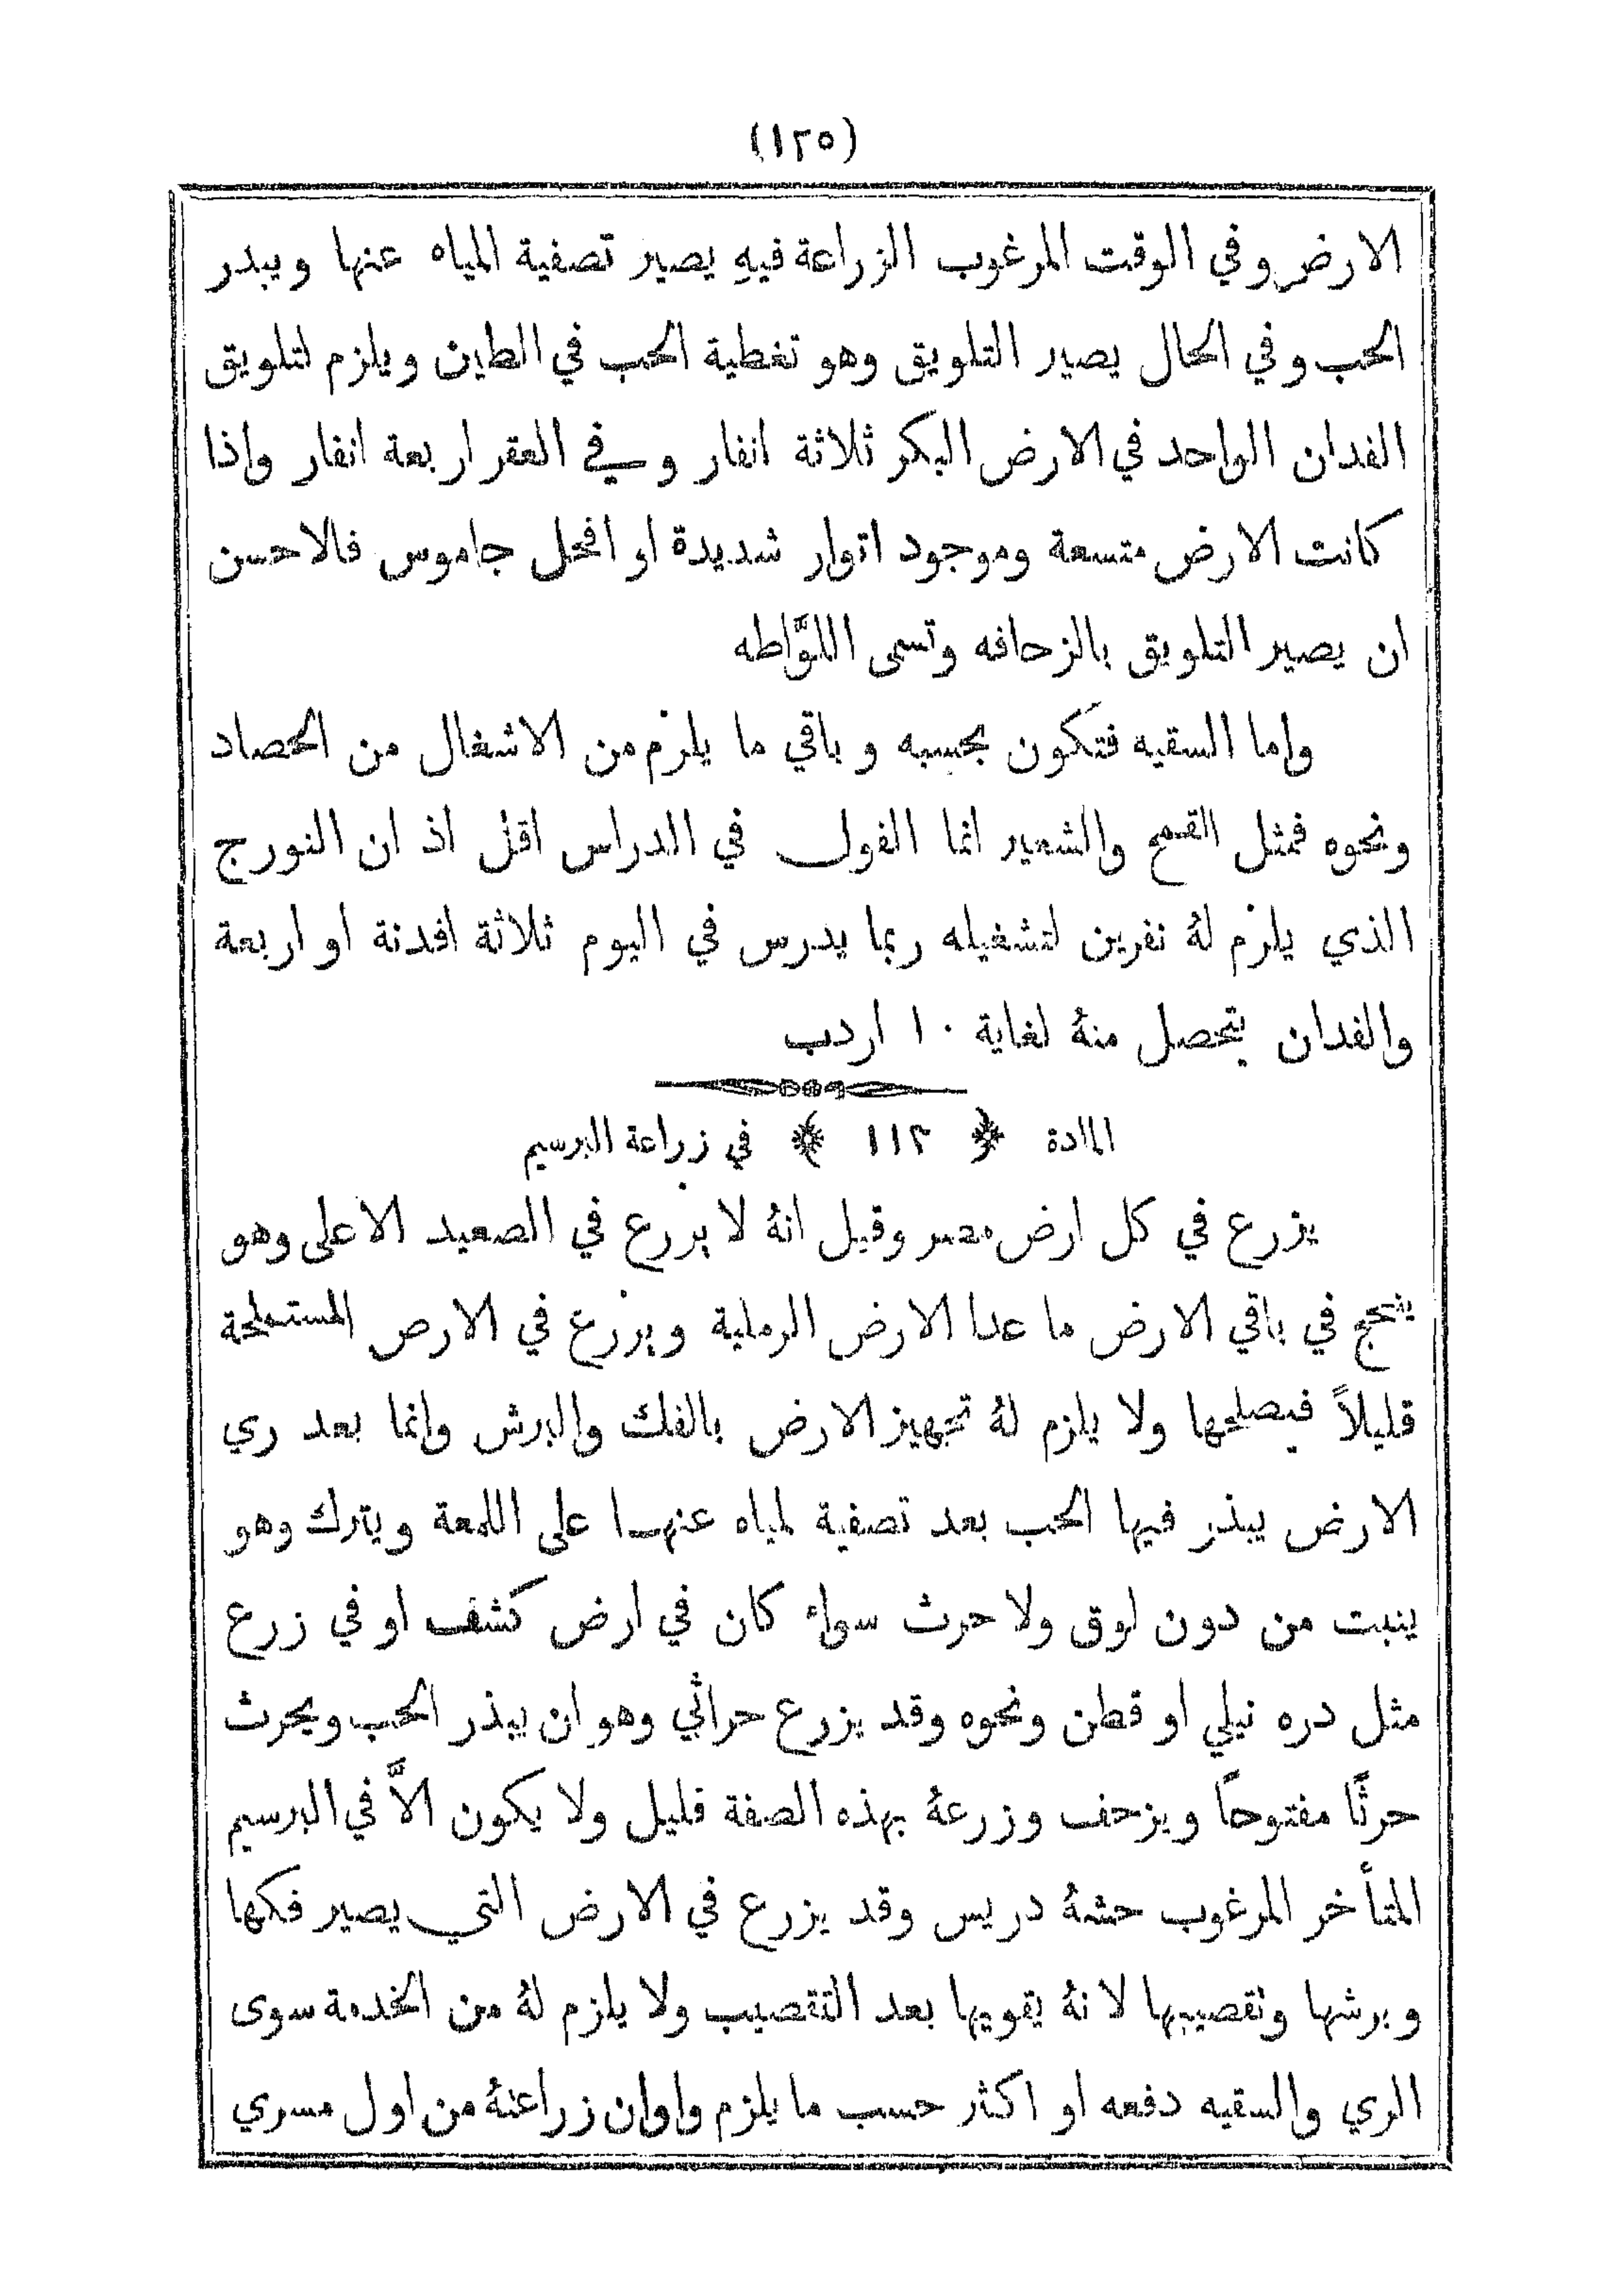 (١٢٥)
الارض وفي الوقت المرغوب الزراعة فيهِ يصير تصفية المياه عنها ويبدر
الحب وفي الحال يصير التلويق وهو تغطية الحب في الطين ويلزم لتلويق
الفدان الواحد في الارض البكر ثلاثة انفار وفي العقر اربعة انفار واذا
كانت الارض متسعة وموجود اتوار شديدة او افحل جاموس فالاحسن
ان يصير التلويق بالزحافه وتسمى اللوَّاطه
واما السقيه فتكون بحسبه وباقي ما يلزم من الاشغال من الحصاد
ونحوه فمثل القمح والشعير انما الفول في الدراس اقل اذ ان النورج
الذي يلزم لهُ نفرين لتشغيله ربما يدرس في اليوم ثلاثة افدنة او اربعة
والفدان يتحصل منهُ لغاية ١٠ اردب
المادة ﴿ ١١٢ ﴾ في زراعة البرسيم
يزرع في كل ارض مصر وقيل انهُ لا يزرع في الصعيد الاعلى وهو
ينجح في باقي الارض ما عدا الارض الرملية ويزرع في الارض المستملحة
قليلاً فيصلحها ولا يلزم لهُ تجهيز الارض بالفك والبرش وانما بعد ري
الارض يبذر فيها الحب بعد تصفية لمياه عنها على اللمعة ويترك وهو
ينبت من دون لوق ولا حرث سواء كان في ارض كشف او في زرع
مثل دره نيلي او قطن ونحوه وقد يزرع حراثي وهو ان يبذر الحب ويحرث
حرثًا مفتوحاً ويزحف وزرعهُ بهذه الصفة قليل ولا يكون الاَّ في البرسيم
المتأخر المرغوب حشهُ دريس وقد يزرع في الارض التي يصير فكها
وبرشها وتقصيبها لانهُ يقويها بعد التقصيب ولا يلزم لهُ من الخدمة سوى
الري والسقيه دفعه او اكثر حسب ما يلزم واوان زراعتهُ من اول مسري